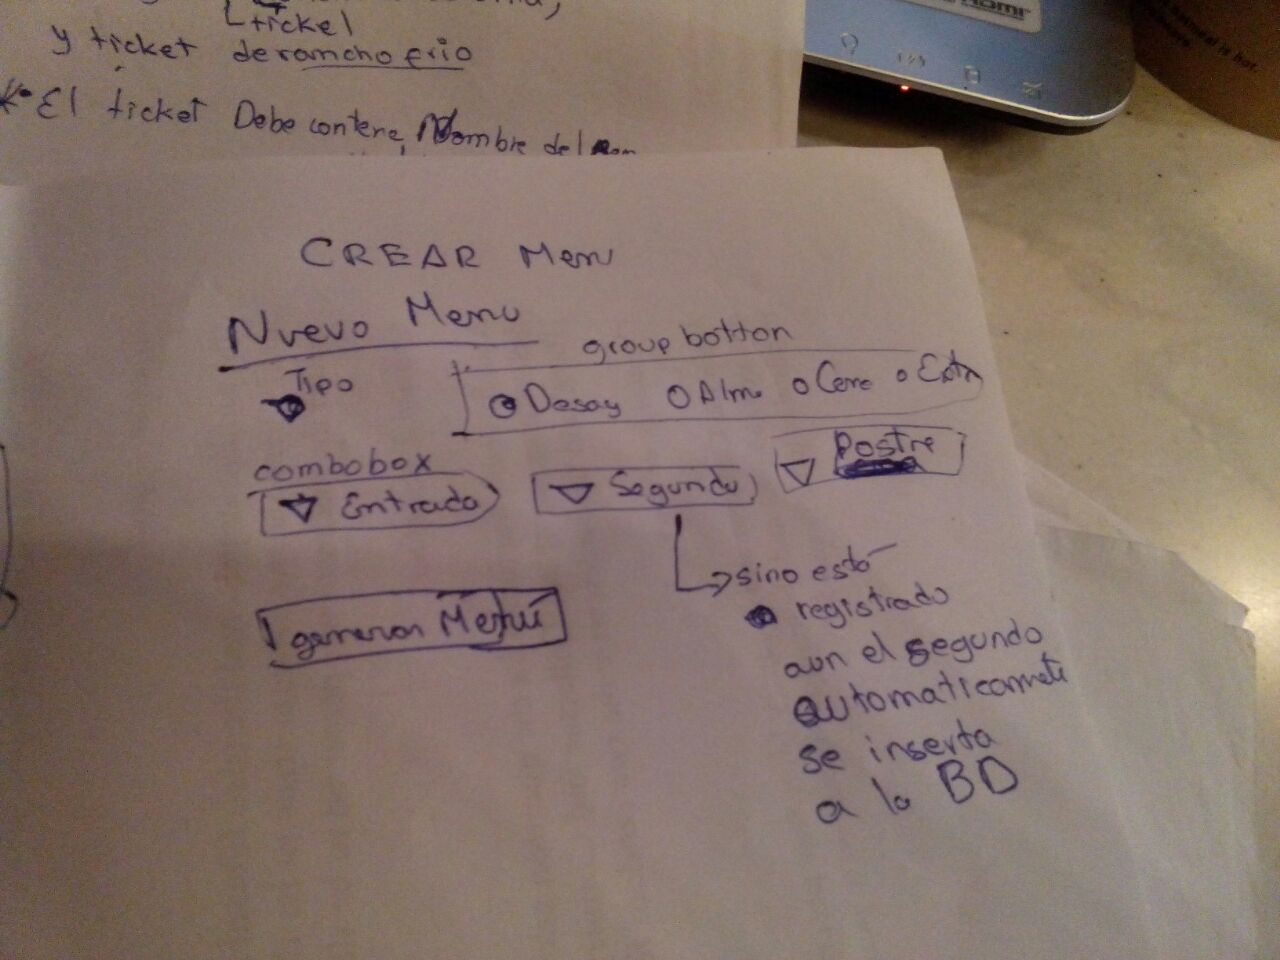 ticket
y ticket de rancho frio
El ticket Debe contene Nombre del
CREAR Menu
Nuevo Menu
group botton
Tipo
Desay Alm Cena Extr
combobox
Entrada Segundo Postre
generar Menú
sino está
registrado
aun el segundo
automaticamete
se inserta
a la BD
HDMI
is hot.